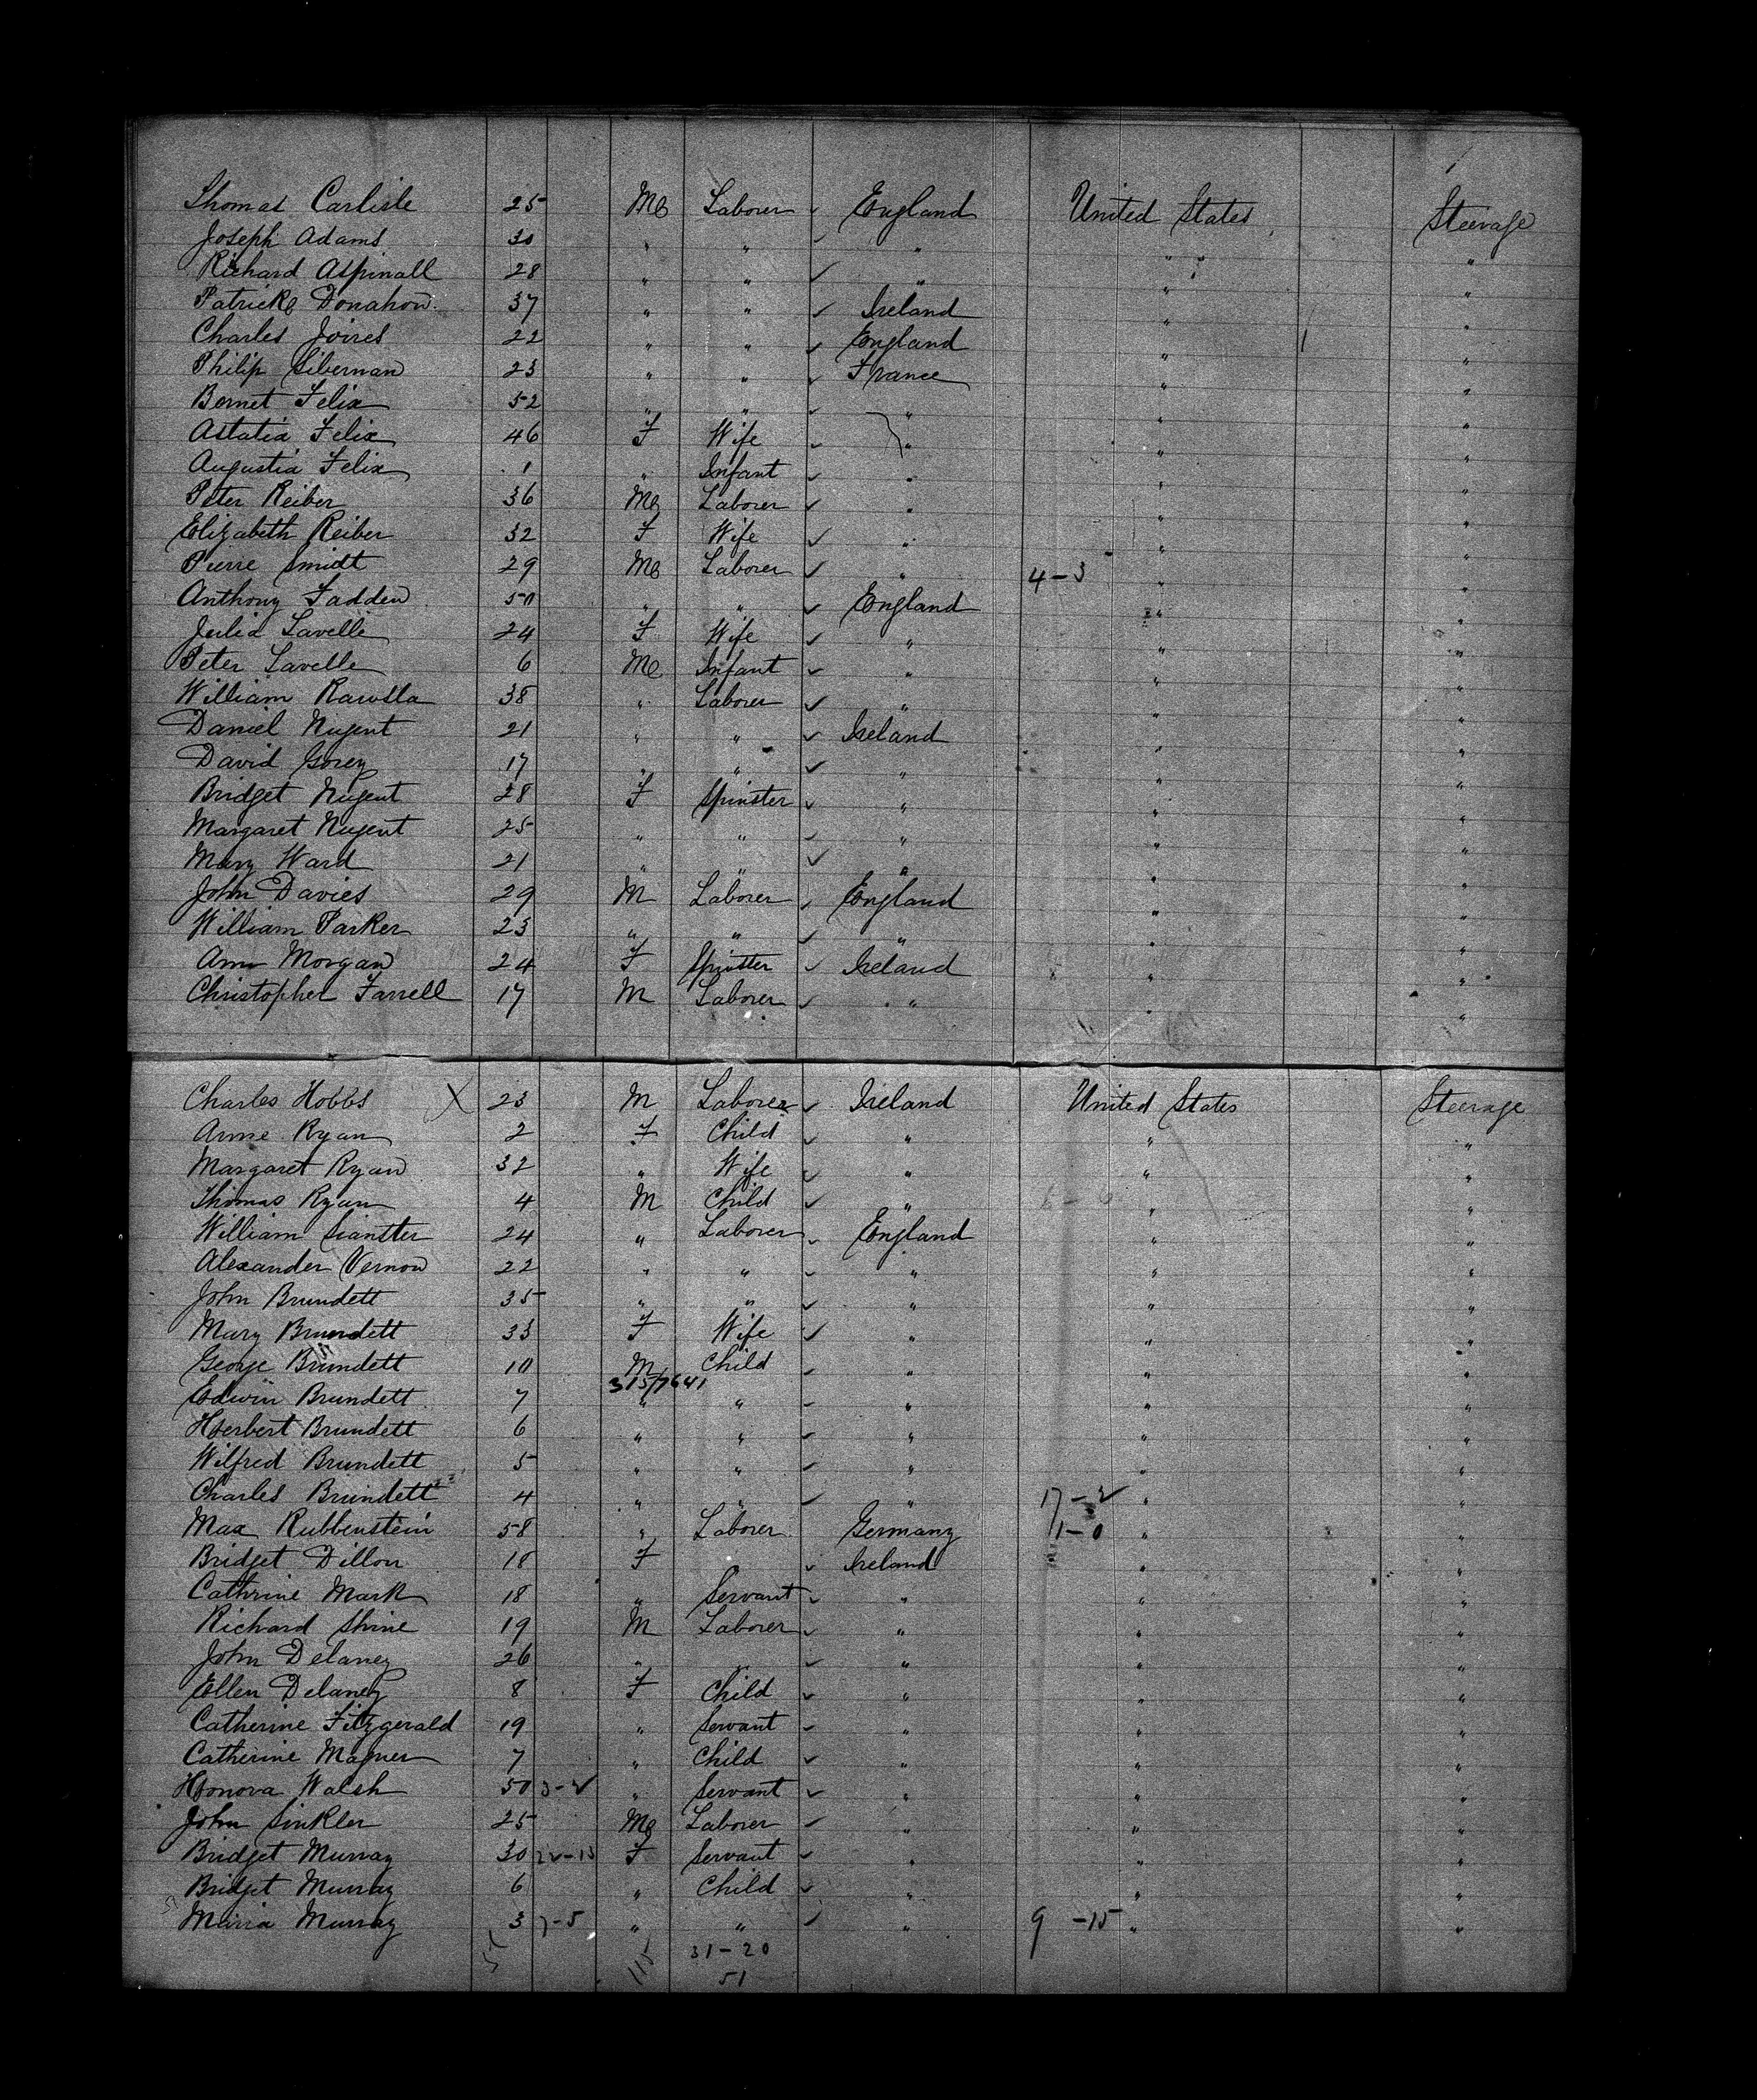 Thomas Carlisle 25 M Laborer ✓ England United States Steerage
Joseph Adams 30 " " ✓ " " "
Richard Aspinall 28 " " ✓ " " "
Patrick Donahow 37 " " ✓ Ireland " "
Charles Joires 22 " " ✓ England " "
Philip Siberman 23 " " ✓ France " "
Bernet Felix 52 " " ✓ " " "
Astatia Felix 46 F Wife ✓ " " "
Augustia Felix 1 " Infant ✓ " " "
Peter Reiber 36 M Laborer ✓ " " "
Elizabeth Reiber 32 F Wife ✓ " " "
Pierre Smidt 29 M Laborer ✓ " 4-3 " "
Anthony Fadden 50 " " ✓ England " "
Julia Lavelle 24 F Wife ✓ " " "
Peter Lavelle 6 M Infant ✓ " " "
William 38 " Laborer ✓ " " "
Daniel Nugent 21 " " ✓ Ireland " "
David Gorey 17 " " ✓ " " "
Bridget Nugent 28 F Spinster ✓ " " "
Margaret Nugent 25 " " ✓ " " "
Mary Ward 21 " " ✓ " " "
John Davies 29 M Laborer ✓ England " "
William Parker 23 " " ✓ " " "
Ann Morgan 24 F Spinster ✓ Ireland " "
Christopher Farrell 17 M Laborer ✓ " " "
Charles Hobbs X 23 M Laborer ✓ Ireland United States Steerage
Anne Ryan 2 F Child ✓ " " "
Margaret Ryan 32 " Wife ✓ " " "
Thomas Ryan 4 M Child ✓ " " "
William 24 " Laborer ✓ England " "
Alexander Vernon 22 " " ✓ " " "
John Brundett 35 " " ✓ " " "
Mary Brundett 33 F Wife ✓ " " "
George Brundett 10 M Child ✓ " " "
315/7641
Edwin Brundett 7 " " ✓ " " "
Herbert Brundett 6 " " ✓ " " "
Wilfred Brundett 5 " " ✓ " " "
Charles Brundett 4 " " ✓ " 17-2 " "
Max Rubbenstein 58 " Laborer Germany 1-0 " "
Bridget Dillon 18 F ✓ Ireland " "
Cathrine Mark 18 " Servant ✓ " " "
Richard Shine 19 M Laborer ✓ " " "
John Delaney 26 " " ✓ " " "
Ellen Delaney 8 F Child ✓ " " "
Catherine Fitzgerald 19 " Servant ✓ " " "
Catherine Magner 7 " Child ✓ " " "
Honora Walsh 50 3-2 " Servant ✓ " " "
John Sinkler 25 M Laborer ✓ " " "
Bridget Murray 30 22-13 F Servant ✓ " " "
Bridget Murray 6 " Child ✓ " " "
Maria Murray 3 7-5 " " ✓ " 9-15 " "
51 115 31-20
51